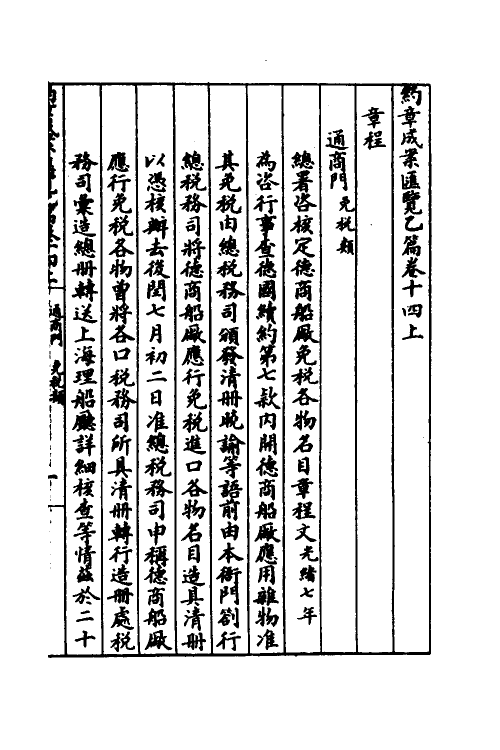 約章成案匯覽乙篇卷十四上
章程
通商門 免稅類
總署咨核定德商船厰免稅各物名目章程文光緒七年
為咨行事查德國續約第七款內開德商船厰應用雜物准
其免稅由總稅務司頒發清册曉諭等語前由本衙門劄行
總稅務司將德商船厰應行免稅進口各物名目造具清册
以憑核辦去後閏七月初二日准總稅務司申稱德商船厰
應行免稅各物曾將各口稅務司所具清册轉行造册處稅
務司彙造總册轉送上海理船廳詳細核查等情茲於二十
通商門 免稅類 一